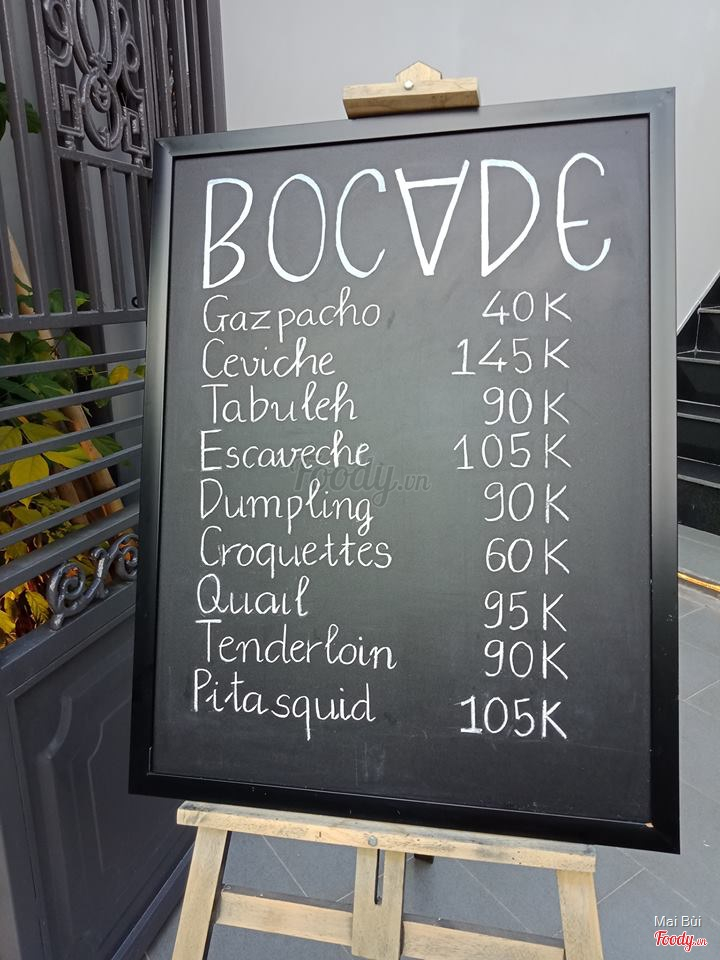 BOCADE
Gazpacho 40K
Ceviche 145K
Tabuleh 90K
Escaveche 105K
Foody.vn
Dumpling 90K
Croquettes 60K
Quail 95K
Tenderloin 90K
Pita squid 105K
Mai Bùi
Foody.vn